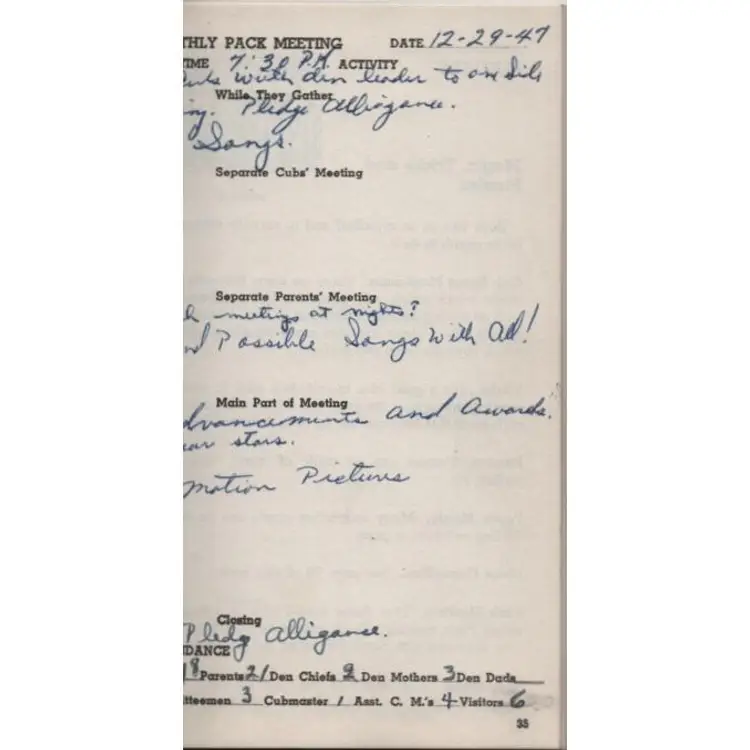 THLY PACK MEETING DATE 12-29-47
TIME 7:30 P.M. ACTIVITY
with den leader to one side
While They Gather
ng. Pledge Alliegance.
Songs.
Separate Cubs' Meeting
Separate Parents' Meeting
h meetings at nights?
nd Possible Songs With All!
Main Part of Meeting
dvancements and Awards.
ear stars.
motion Pictures
Closing
Pledg Alligance.
NDANCE
18 Parents 21 Den Chiefs 2 Den Mothers 3 Den Dads
itteemen 3 Cubmaster 1 Asst. C. M.'s 4 Visitors 6
35